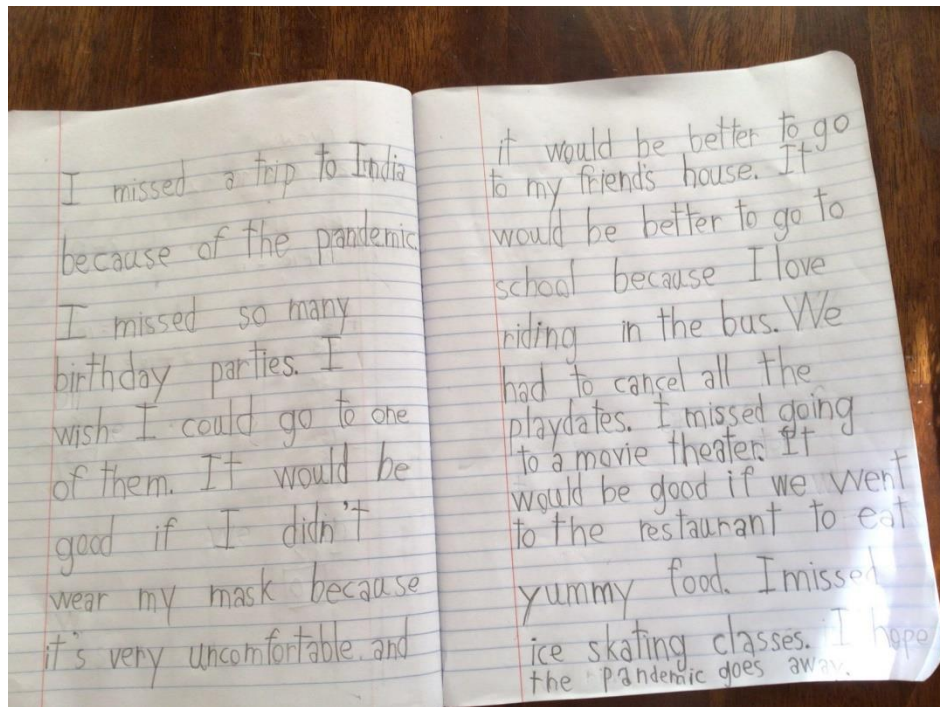 I missed a trip to Iindia
because of the pandemic.
I missed so many
birthday parties. I
wish I could go to one
of them. It would be
good if I didn't
wear my mask because
it's very uncomfortable and
it would be better to go
to my friends house. It
would be better to go to
school because I love
riding in the bus. We
had to cancel all the
playdates. I missed going
to a movie theater. It
would be good if we went
to the restaurant to eat
yummy food. I missed
ice skating classes. I hope
the pandemic goes away.